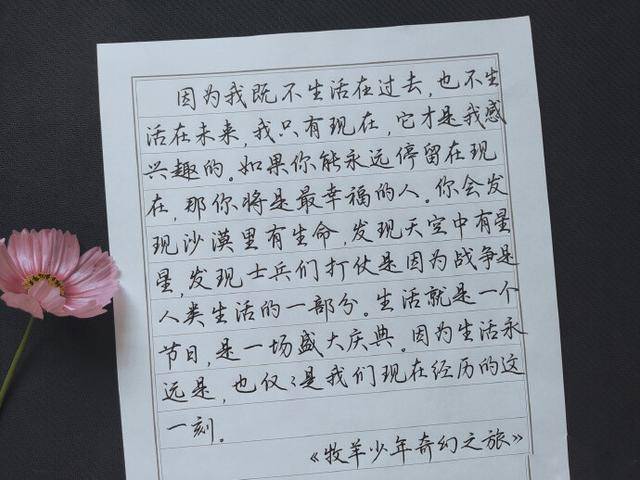 因为我既不生活在过去，也不生
活在未来，我只有现在，它才是我感
兴趣的。如果你能永远停留在现
在，那你将是最幸福的人。你会发
现沙漠里有生命，发现天空中有星
星，发现士兵们打仗是因为战争是
人类生活的一部分。生活就是一个
节日，是一场盛大庆典。因为生活永
远是，也仅㇀是我们现在经历的这
一刻。
《牧羊少年奇幻之旅》